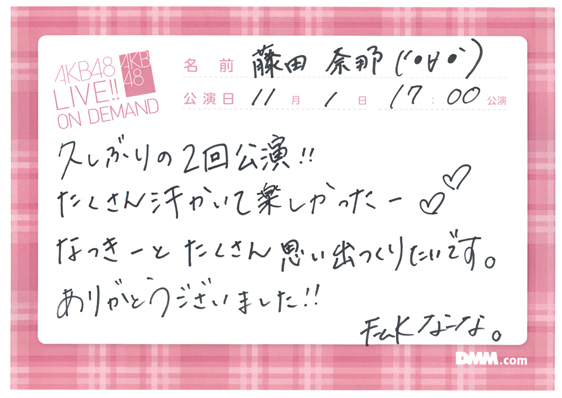 AKB48
LIVE!!
ON DEMAND
AKB
48
名前 藤田 奈那 ('•∀•')
公演日 11月 1日 17:00 公演
久しぶりの2回公演!!
たくさん汗かいて楽しかったー♡♡
なっきーとたくさん思い出つくりたいです。
ありがとうございました!!
なーな。
DMM.com